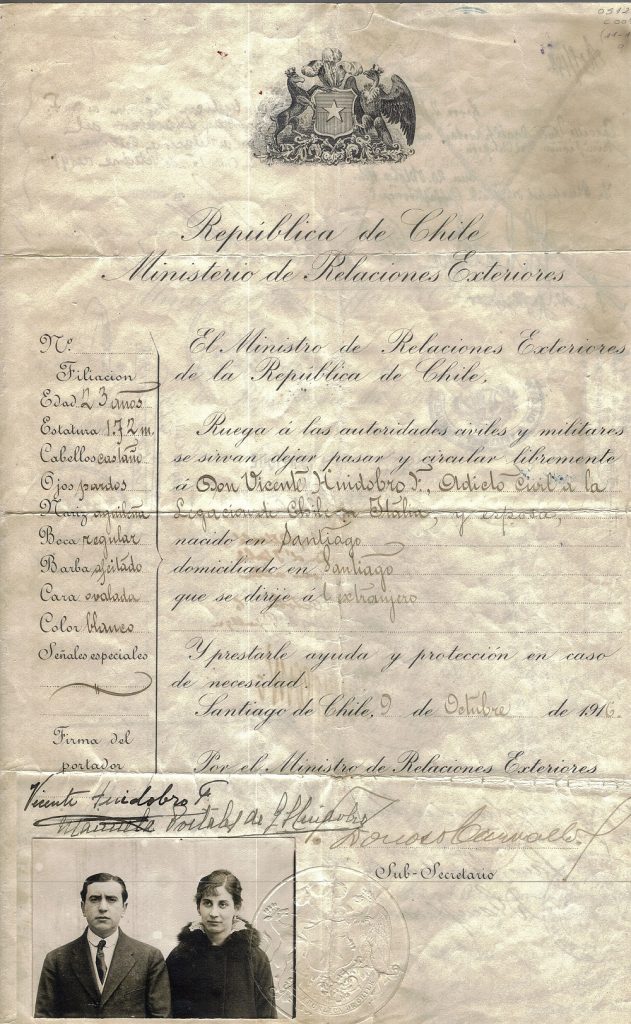 República de Chile
Ministerio de Relaciones Exteriores
Nº
Filiacion
Edad 23 años
Estatura 1.72 m
Cabellos castaño
Ojos pardos
Nariz aguileña
Boca regular
Barba afeitado
Cara ovalada
Color blanco
Señales especiales
Firma del
portador
El Ministro de Relaciones Exteriores
de la República de Chile,
Ruega á las autoridades civiles y militares
se sirvan dejar pasar y circular libremente
á Don Vicente Huidobro F., Adicto Civil á la
Legacion de Chile en Italia, y esposa,
nacido en Santiago
domiciliado en Santiago
que se dirije á l extranjero
Y prestarle ayuda y protección en caso
de necesidad.
Santiago de Chile, 9 de Octubre de 1916.
Por el Ministro de Relaciones Exteriores
Vicente Huidobro F.
Manuela Portales de Huidobro
Donoso Carvallo
Sub-Secretario